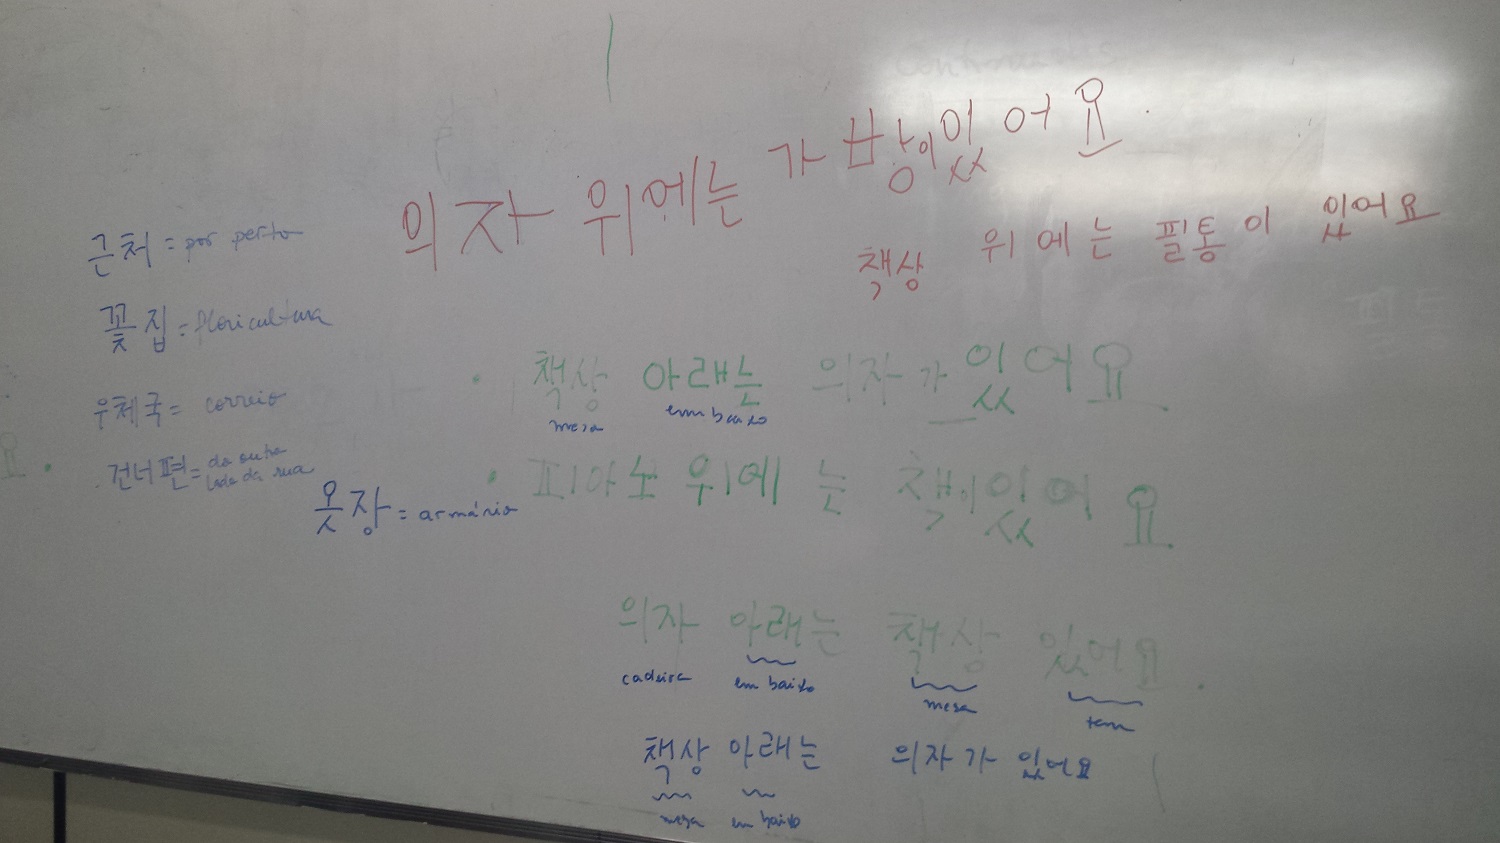 의자 위에는 가방이 있어요.
책상 위에는 필통이 있어요
근처 = por perto
꽃집 = floricultura
우체국 = correio
건너편 = do outro lado da rua
옷장 = armário
책상 아래는 의자가 있어요.
mesa em baixo
피아노 위에는 책이 있어요.
의자 아래는 책상 있어요.
cadeira em baixo mesa tem
책상 아래는 의자가 있어요
mesa em baixo